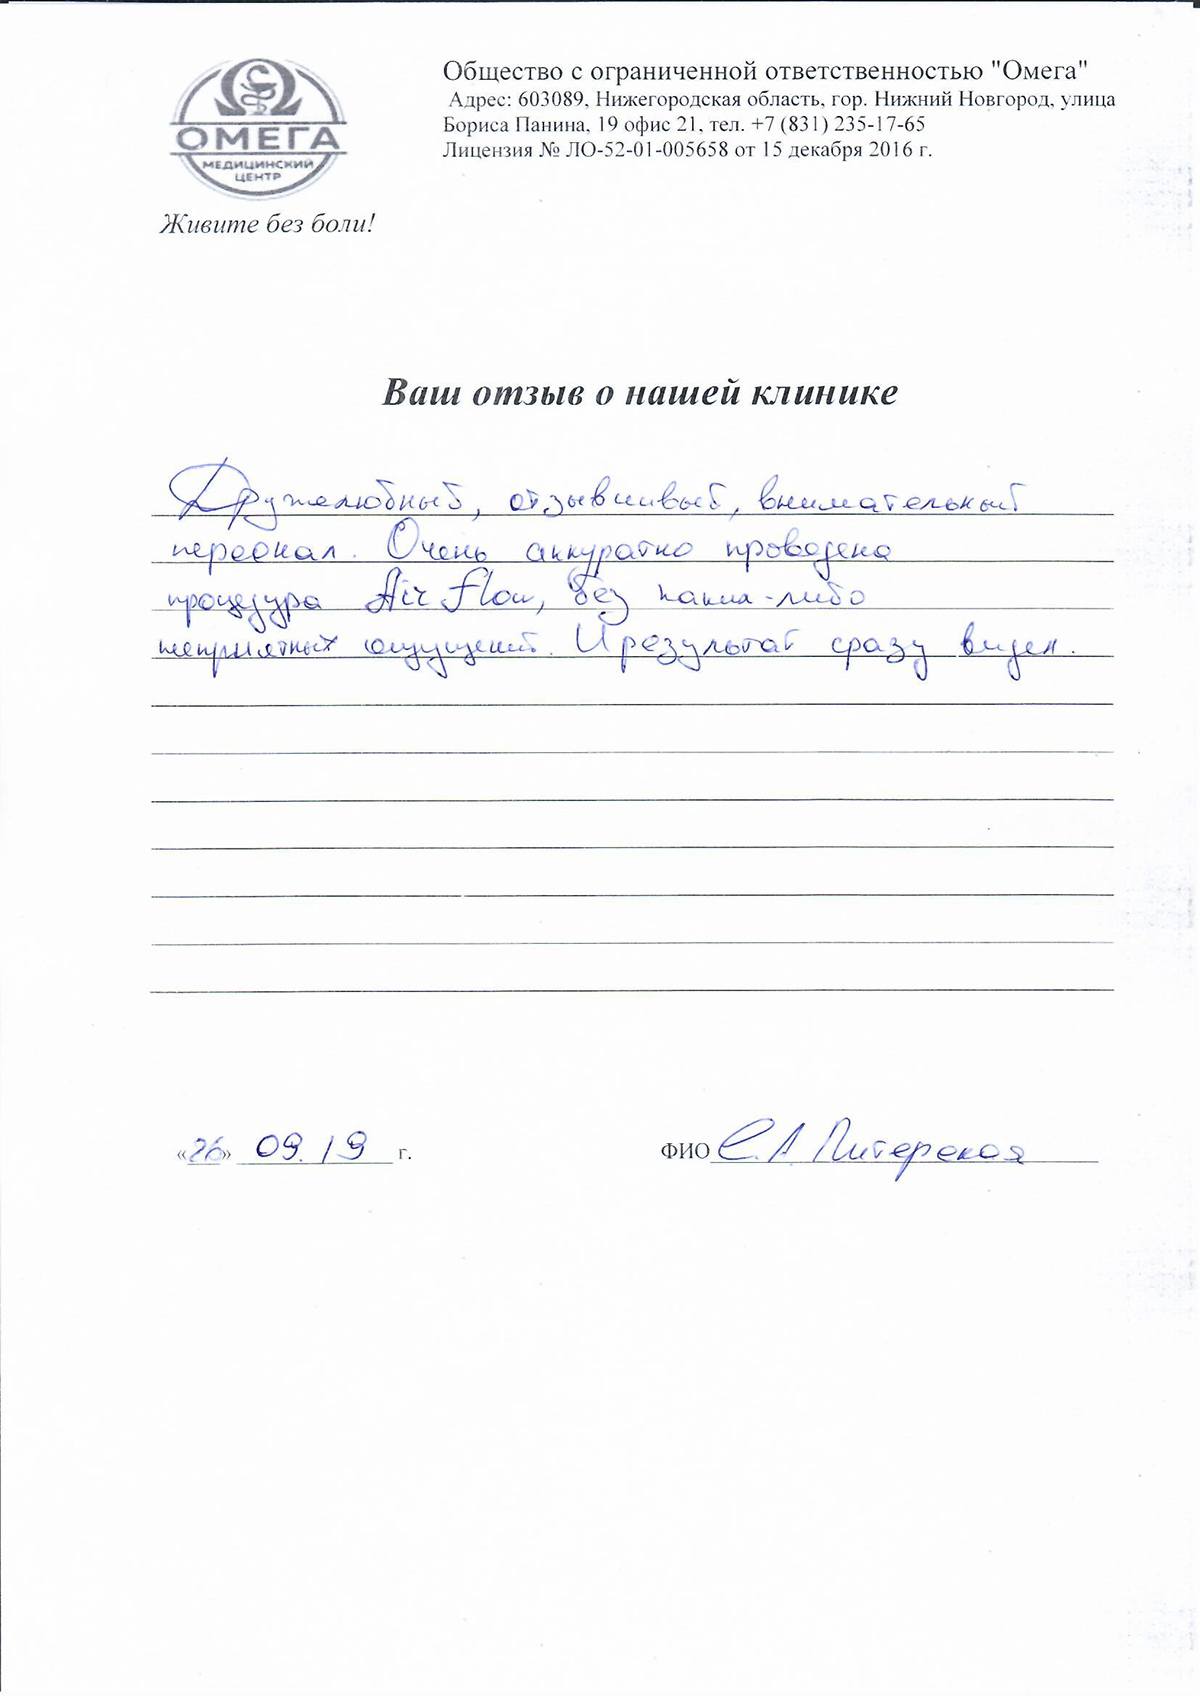 ОМЕГА
МЕДИЦИНСКИЙ
ЦЕНТР
Живите без боли!
Общество с ограниченной ответственностью "Омега"
Адрес: 603089, Нижегородская область, гор. Нижний Новгород, улица
Бориса Панина, 19 офис 21, тел. +7 (831) 235-17-65
Лицензия № ЛО-52-01-005658 от 15 декабря 2016 г.
Ваш отзыв о нашей клинике
Дружелюбный, отзывчивый, внимательный
персонал. Очень аккуратно проведена
процедура Air Flow, без каких-либо
неприятных ощущений. И результат сразу виден.
«26» 09.19 г.
ФИО С.А. Питерская